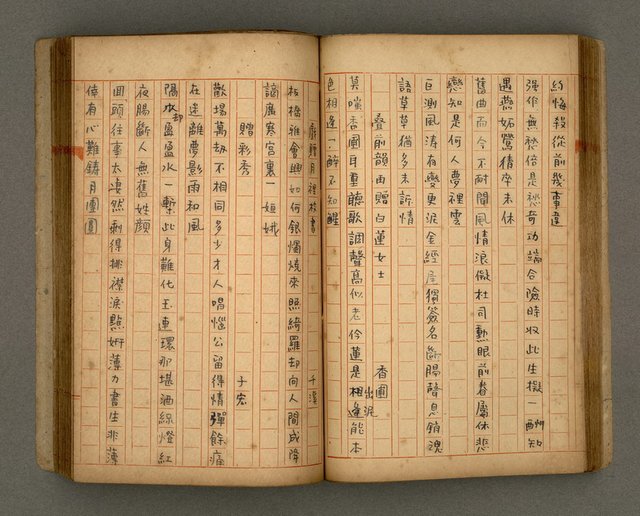 約悔殺從前幾事違
強作無愁倍是愁奇功端合險時收此生擬一酬知
遇燕妬鶯猜卒未休
舊曲而今不耐聞風情浪儗杜司勳眼前眷屬休悲
戀知是何人夢裡雲
叵測風濤有變更淚金經唇獨簽名斷腸聲息銷魂
語草草猶多未訴情
疊前韻再贈白蓮女士
香圃
莫嗤香國耳重聽歌調聲高似老伶蓮是出泥相逢能本
色相逢一醉不知醒
月裡校書
千溪
板橋雅會興如何銀燭燒來照綺羅却向人間成降
謫廣寒宮裏一姮娥
贈彩秀
子宏
歡場萬劫不相同多少才人唱惱公留得情彈餘痛
在迷離夢影雨和風
隔水却盈盈水一塹此身難化玉連環那堪酒綠燈紅
夜腸斷人無舊姓顏
回頭往事太凄然剩得排襟淚點妍薄力書生非薄
倖有心難鑄月團圓